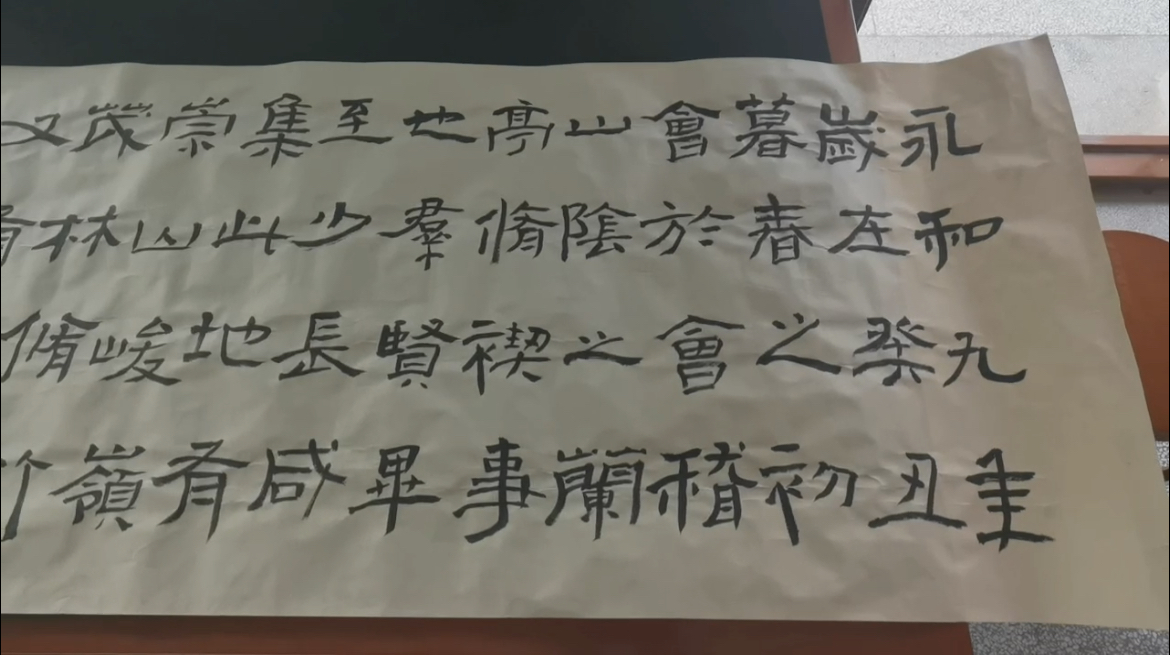 永和九年
歲在癸丑
暮春之初
會於會稽
山陰之蘭
亭脩禊事
也羣賢畢
至少長咸
集此地有
崇山峻嶺
茂林脩竹
又有